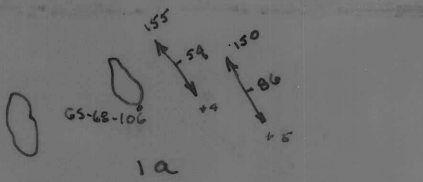 .55
54
+4
.150
86
+5
GS-68-106
1a